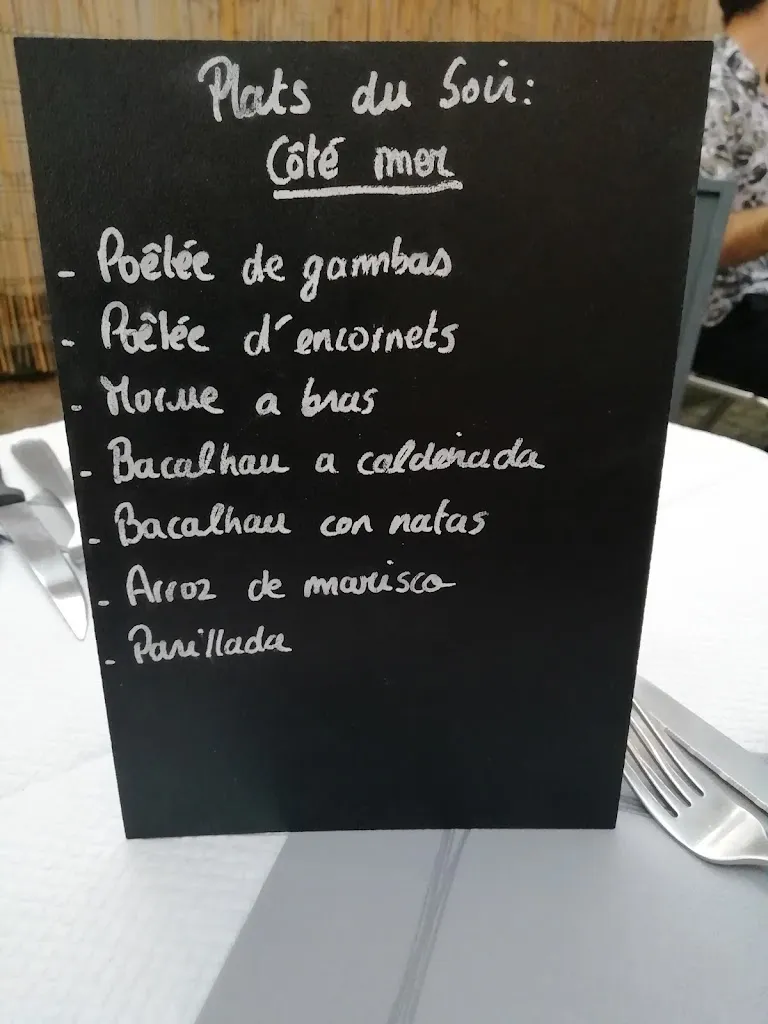 Plats du Soir:
Côté mer
- Poêlée de gambas
- Poêlée d'encornets
- Morue a bras
- Bacalhau a caldeirada
- Bacalhau con natas
- Arroz de marisco
- Parillada